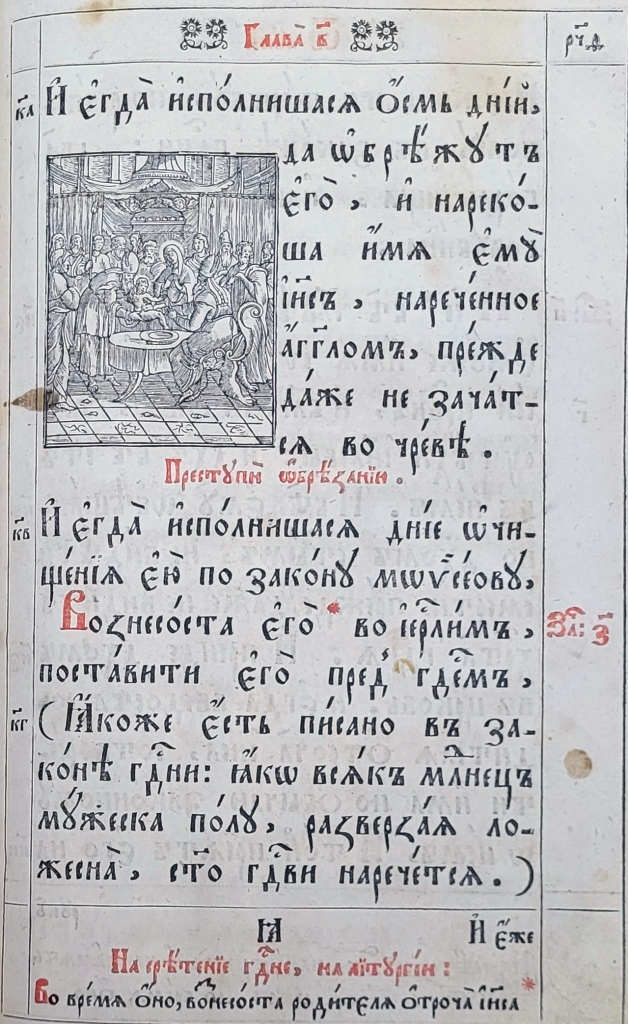 Глава̀ в҃
рч҃д
к҃а И҆ є҆гда̀ и҆спо́лнишася ѻ҆́смь дні́й,
да ѡ҆брѣ́жꙋтъ
є҆го̀, и҆ нареко́-
ша и҆́мѧ є҆мꙋ̀
і҆и҃съ, нарече́нное
а҆́гг҃ломъ, пре́жде
да́же не зача́т-
сѧ во чре́вѣ.
Престꙋпѝ ѡ҆брѣ́занїи.
к҃в И҆ є҆гда̀ и҆спо́лнишасѧ дні́е ѡ҆чи-
ще́нїѧ є҆ю̀ по зако́нꙋ мѡѷсе́овꙋ,
Вознесо́ста є҆го̀ * во і҆ерⷭ҇ли́мъ,
За҃: з҃
поста́вити є҆го̀ пред̾ гдⷭ҇емъ,
к҃г (Ꙗ҆́коже є҆́сть пи́сано въ за-
ко́нѣ гдⷭ҇ни: ꙗ҆́кѡ всѧ́къ млⷣнецъ
мꙋ́жеска по́лꙋ, разверза́ѧ ло-
жесна̀, ст҃о гдⷭ҇ви нарече́тсѧ.)
И҆ є҆́же
На срѣ́тенїе гдⷭ҇не, на лїтꙋргі́и:
Во вре́мѧ ѻ҆́но, вознесо́ста роди́телѧ ѻ҆троча̀ і҆и҃са *